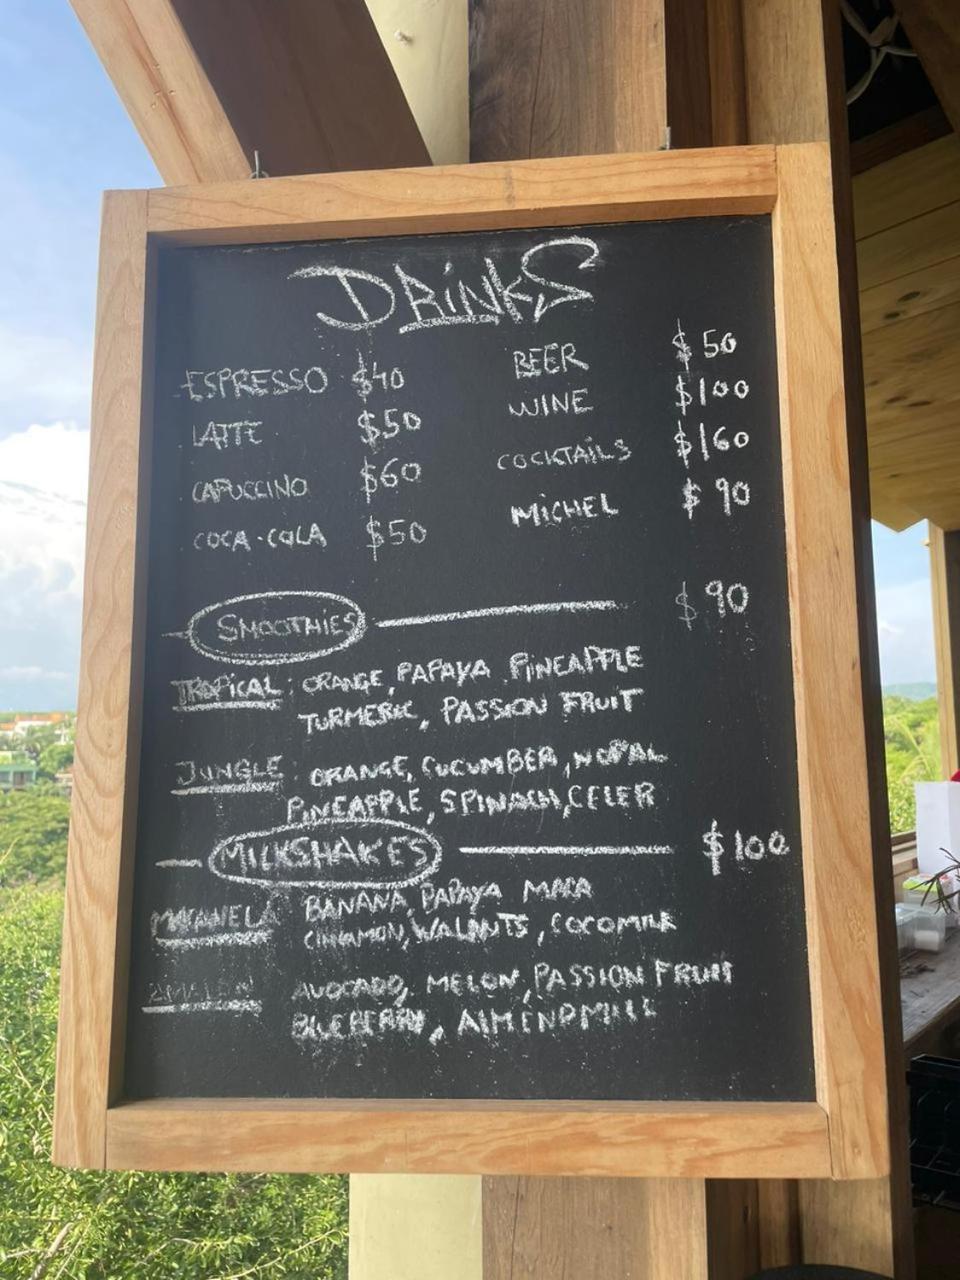 DRINKS
ESPRESSO $40
LATTE $50
CAPUCCINO $60
COCA-COLA $50
BEER $50
WINE $100
COCKTAILS $160
MICHEL $90
SMOOTHIES $90
TROPICAL: ORANGE, PAPAYA PINEAPPLE
TURMERIC, PASSION FRUIT
JUNGLE: ORANGE, CUCUMBER, NOPAL
PINEAPPLE, SPINACH, CELER
MILKSHAKES $100
BANANA, PAPAYA MACA
CINNAMON, WALNUTS, COCOMILK
AVOCADO, MELON, PASSION FRUIT
BLUEBERRY, ALMENDMILK